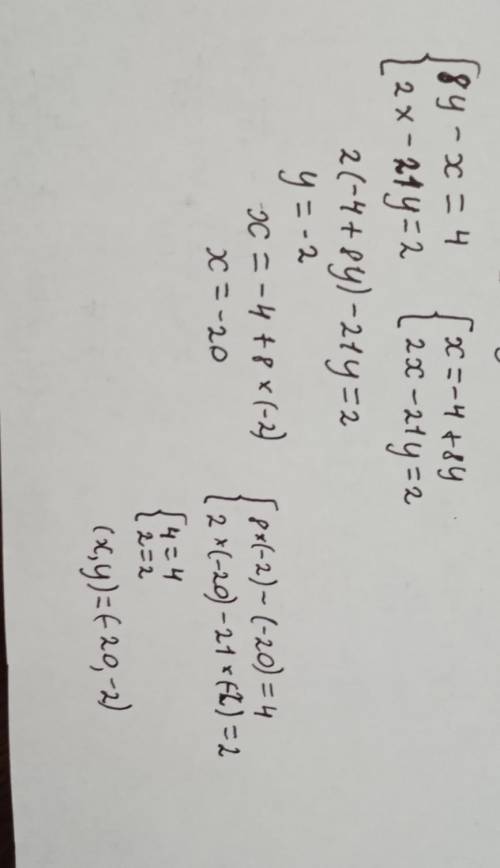 {8y - x = 4
{2x - 21y = 2
{x = -4 + 8y
{2x - 21y = 2
2(-4 + 8y) - 21y = 2
y = -2
x = -4 + 8 × (-2)
x = -20
{8 × (-2) - (-20) = 4
{2 × (-20) - 21 × (-2) = 2
{4 = 4
{2 = 2
(x, y) = (-20, -2)